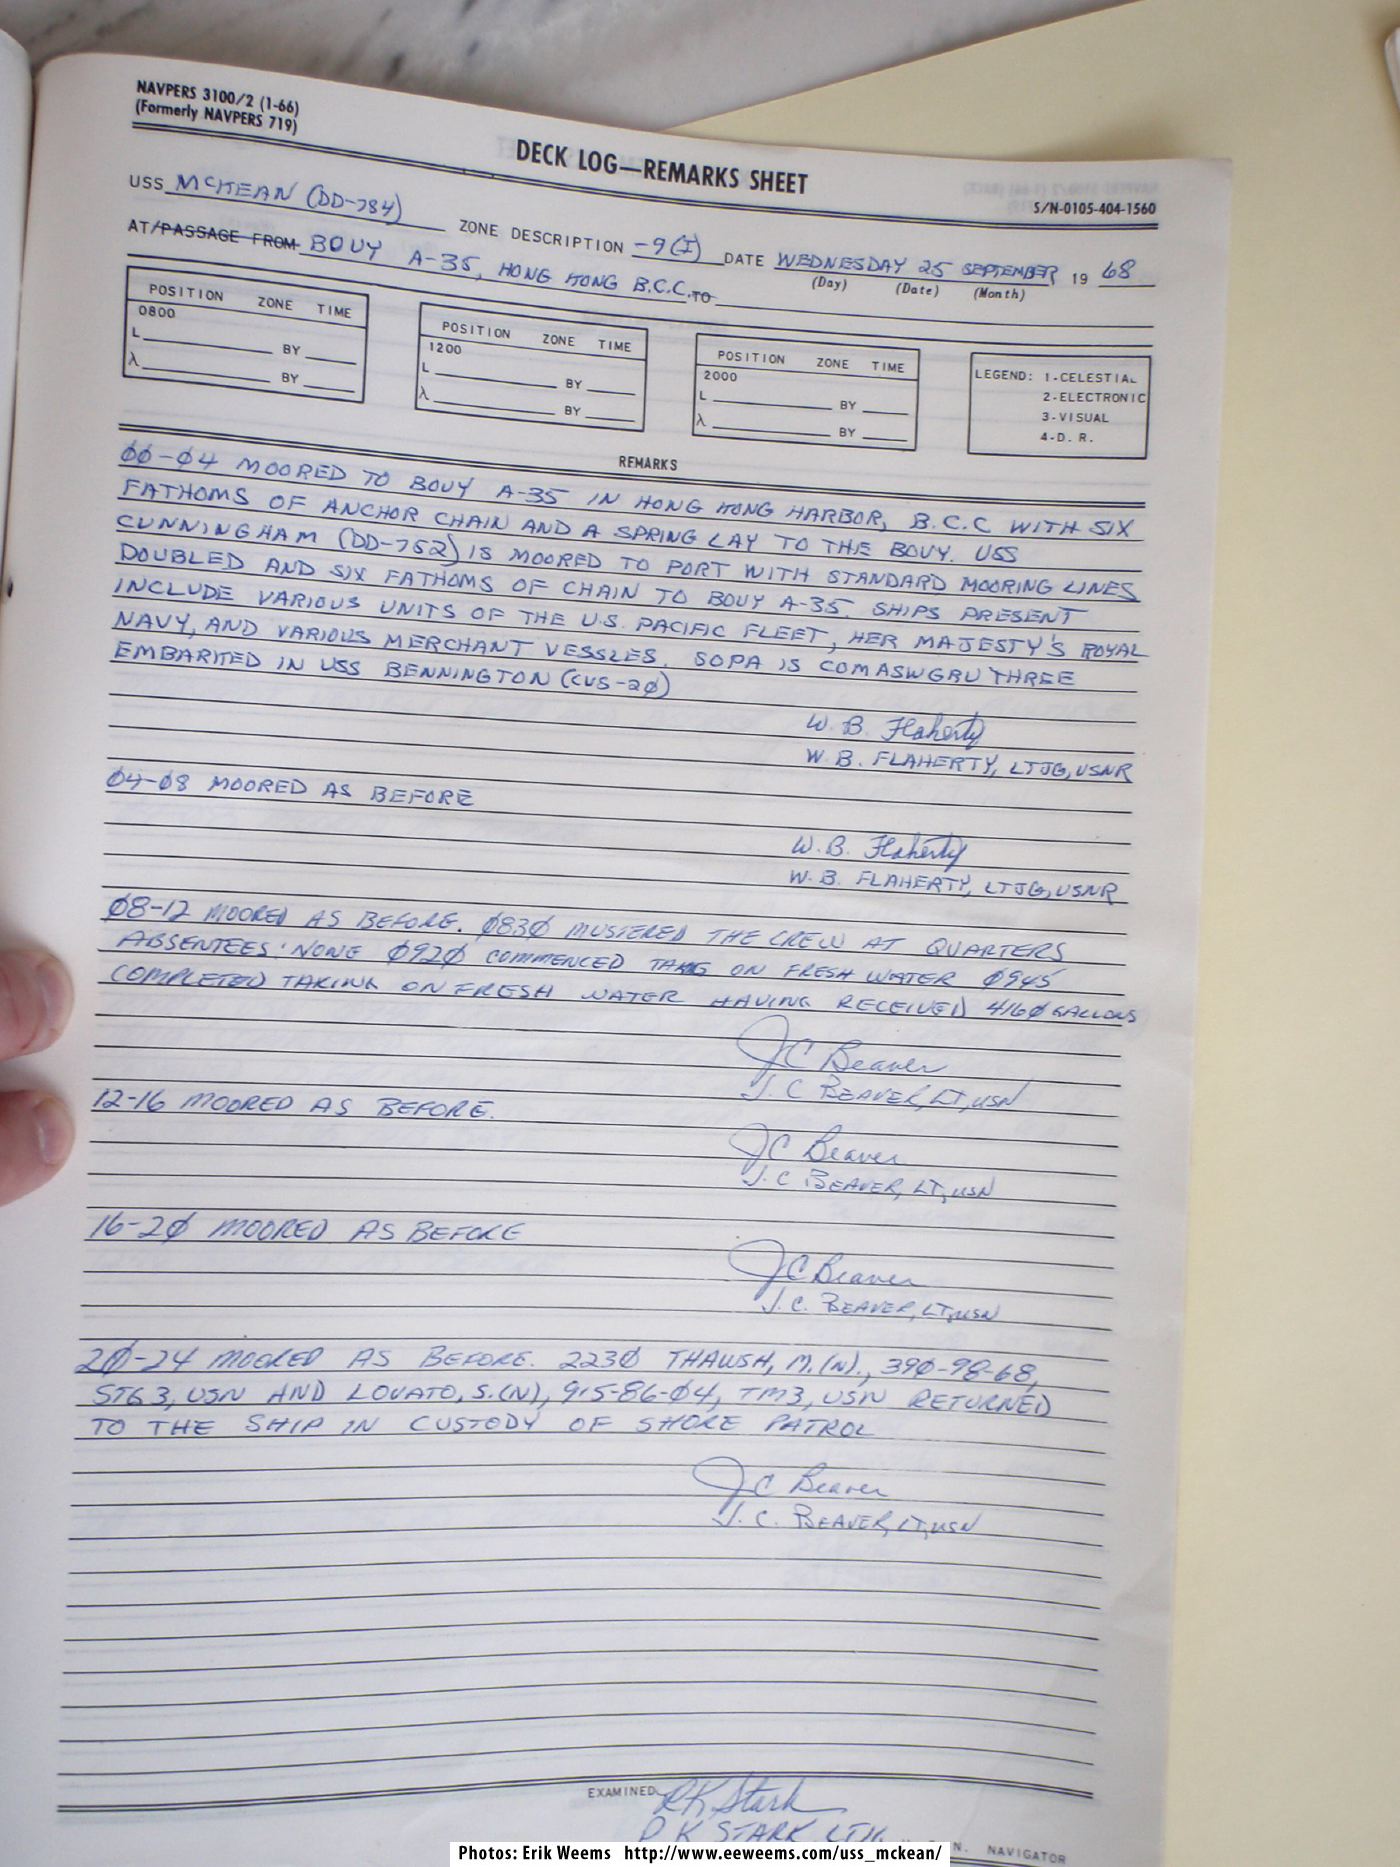 NAVPERS 3100/2 (1-66)
(Formerly NAVPERS 719)
DECK LOG—REMARKS SHEET
S/N-0105-404-1560
USS McKEAN (DD-784) ZONE DESCRIPTION -9(I) DATE WEDNESDAY 25 SEPTEMBER 19 68
(Day) (Date) (Month)
AT/PASSAGE FROM BOUY A-35, HONG KONG B.C.C. TO
POSITION ZONE TIME
0800
L BY
λ BY
POSITION ZONE TIME
1200
L BY
λ BY
POSITION ZONE TIME
2000
L BY
λ BY
LEGEND: 1-CELESTIAL
2-ELECTRONIC
3-VISUAL
4-D. R.
REMARKS
00-04 MOORED TO BOUY A-35 IN HONG KONG HARBOR, B.C.C WITH SIX
FATHOMS OF ANCHOR CHAIN AND A SPRING LAY TO THE BOUY. USS
CUNNINGHAM (DD-752) IS MOORED TO PORT WITH STANDARD MOORING LINES
DOUBLED AND SIX FATHOMS OF CHAIN TO BOUY A-35. SHIPS PRESENT
INCLUDE VARIOUS UNITS OF THE U.S. PACIFIC FLEET, HER MAJESTY'S ROYAL
NAVY, AND VARIOUS MERCHANT VESSLES. SOPA IS COMASWGRU THREE
EMBARKED IN USS BENNINGTON (CVS-20)
W. B. Flaherty
W. B. FLAHERTY, LTJG, USNR
04-08 MOORED AS BEFORE
W. B. Flaherty
W. B. FLAHERTY, LTJG, USNR
08-12 MOORED AS BEFORE. 0830 MUSTERED THE CREW AT QUARTERS
ABSENTEES: NONE 0920 COMMENCED TAKING ON FRESH WATER 0945
COMPLETED TAKING ON FRESH WATER HAVING RECEIVED 4160 GALLONS
JC Beaver
J. C BEAVER, LT, USN
12-16 MOORED AS BEFORE.
JC Beaver
J. C BEAVER, LT, USN
16-20 MOORED AS BEFORE
JC Beaver
J. C. BEAVER, LT, USN
20-24 MOORED AS BEFORE. 2230 THAWSH, M.(N)., 390-98-68,
STG3, USN AND LOVATO, S.(N), 915-86-04, TM3, USN RETURNED
TO THE SHIP IN CUSTODY OF SHORE PATROL
JC Beaver
J. C. BEAVER, LT, USN
EXAMINED RK Stark
R K STARK, LTJG N. NAVIGATOR
Photos: Erik Weems http://www.eeweems.com/uss_mckean/